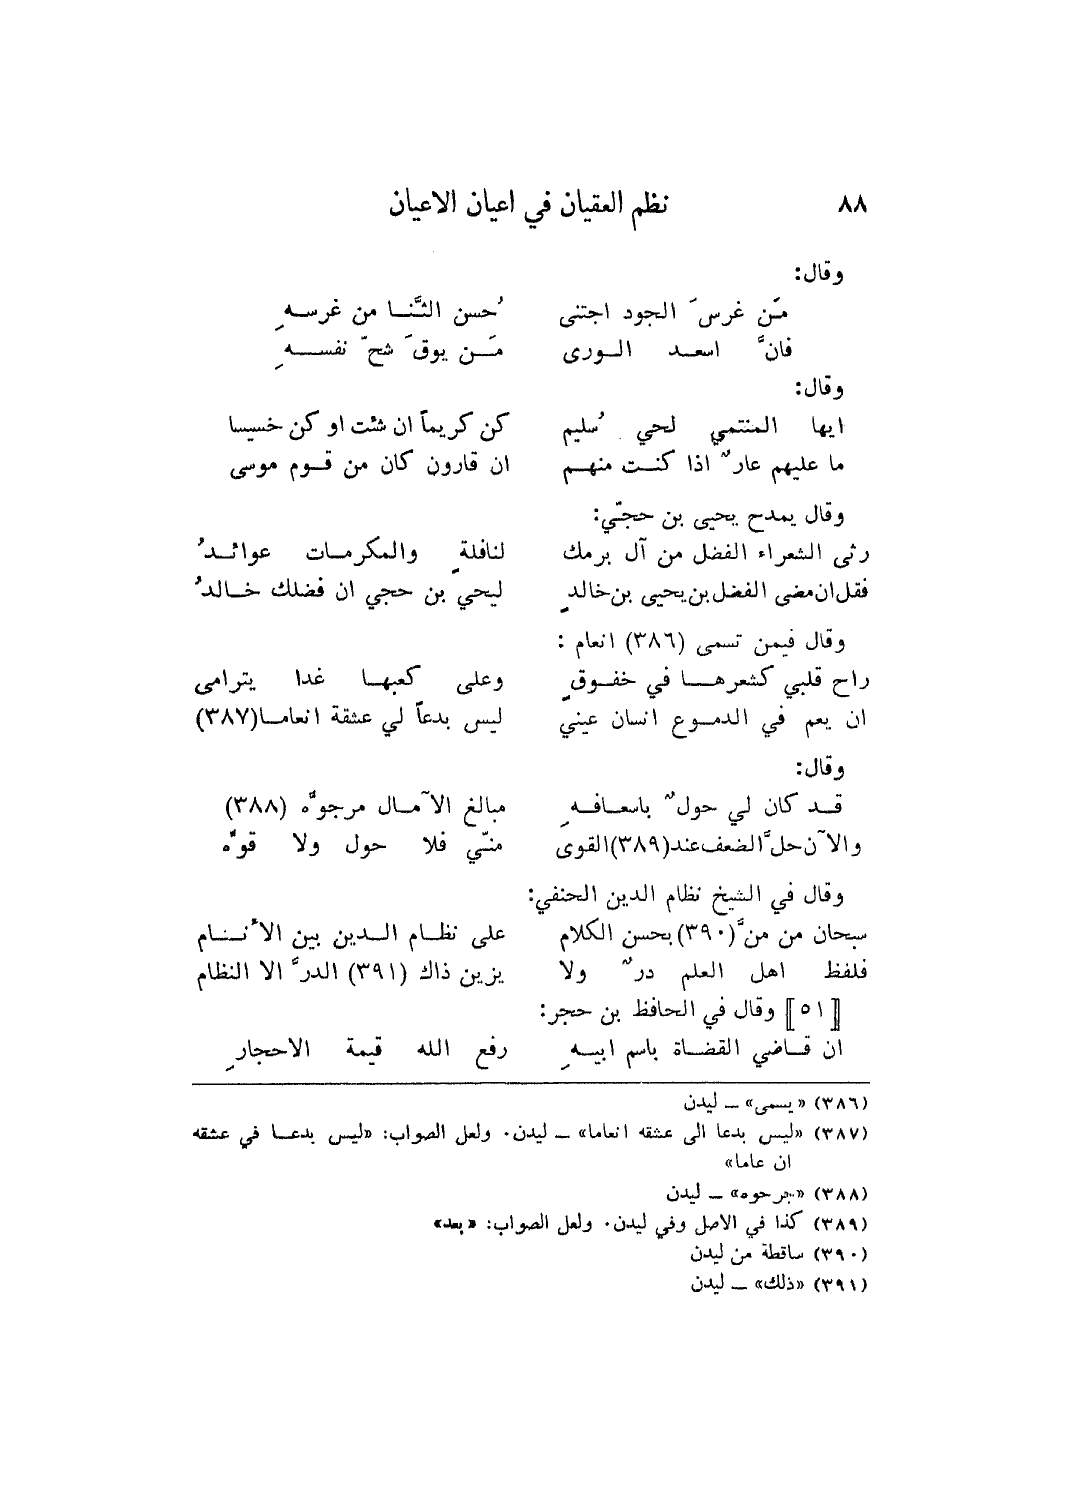 ٨٨ نظم العقيان في اعيان الاعيان
وقال:
مَن غرسَ الجود اجتنى حُسن الثَّنـا من غرسـهِ
فانَّ اسعـد الـورى مَـن يوقَ شحّ نفسـهِ
وقال:
ايها المنتمي لحي سُليم كن كريماً ان شئت او كن خسيسا
ما عليهم عارٌ اذا كنـت منهـم ان قارون كان من قـوم موسى
وقال يمدح يحيى بن حجّي:
رثى الشعراء الفضل من آل برمك لنافلةٍ والمكرمـات عوائـدُ
فقل ان مضى الفضل بن يحيى بن خالدٍ ليحي بن حجي ان فضلك خـالدُ
وقال فيمن تسمى (٣٨٦) انعام :
راح قلبي كشعرهـا في خفـوقٍ وعلى كعبهـا غدا يترامى
ان يعم في الدمـوع انسان عيني ليس بدعاً لي عشقة انعامـا(٣٨٧)
وقال:
قـد كان لي حولٌ باسعـافـهِ مبالغ الآمـال مرجوَّه (٣٨٨)
والآن حلَّ الضعف عند(٣٨٩)القوى منّي فلا حول ولا قوَّه
وقال في الشيخ نظام الدين الحنفي:
سبحان من منَّ(٣٩٠)بحسن الكلام على نظـام الـدين بين الأنـام
فلفظ اهل العلم درٌ ولا يزين ذاك (٣٩١) الدرَّ الا النظام
[٥١] وقال في الحافظ بن حجر:
ان قـاضي القضـاة باسم ابيـهِ رفع الله قيمة الاحجارِ
(٣٨٦) «يسمى» ــ ليدن
(٣٨٧) «ليس بدعا الى عشقه انعاما» ــ ليدن. ولعل الصواب: «ليس بدعـا في عشقه
ان عاما»
(٣٨٨) ــ ليدن
(٣٨٩) كذا في الاصل وفي ليدن. ولعل الصواب: «بعد»
(٣٩٠) ساقطة من ليدن
(٣٩١) «ذلك» ــ ليدن